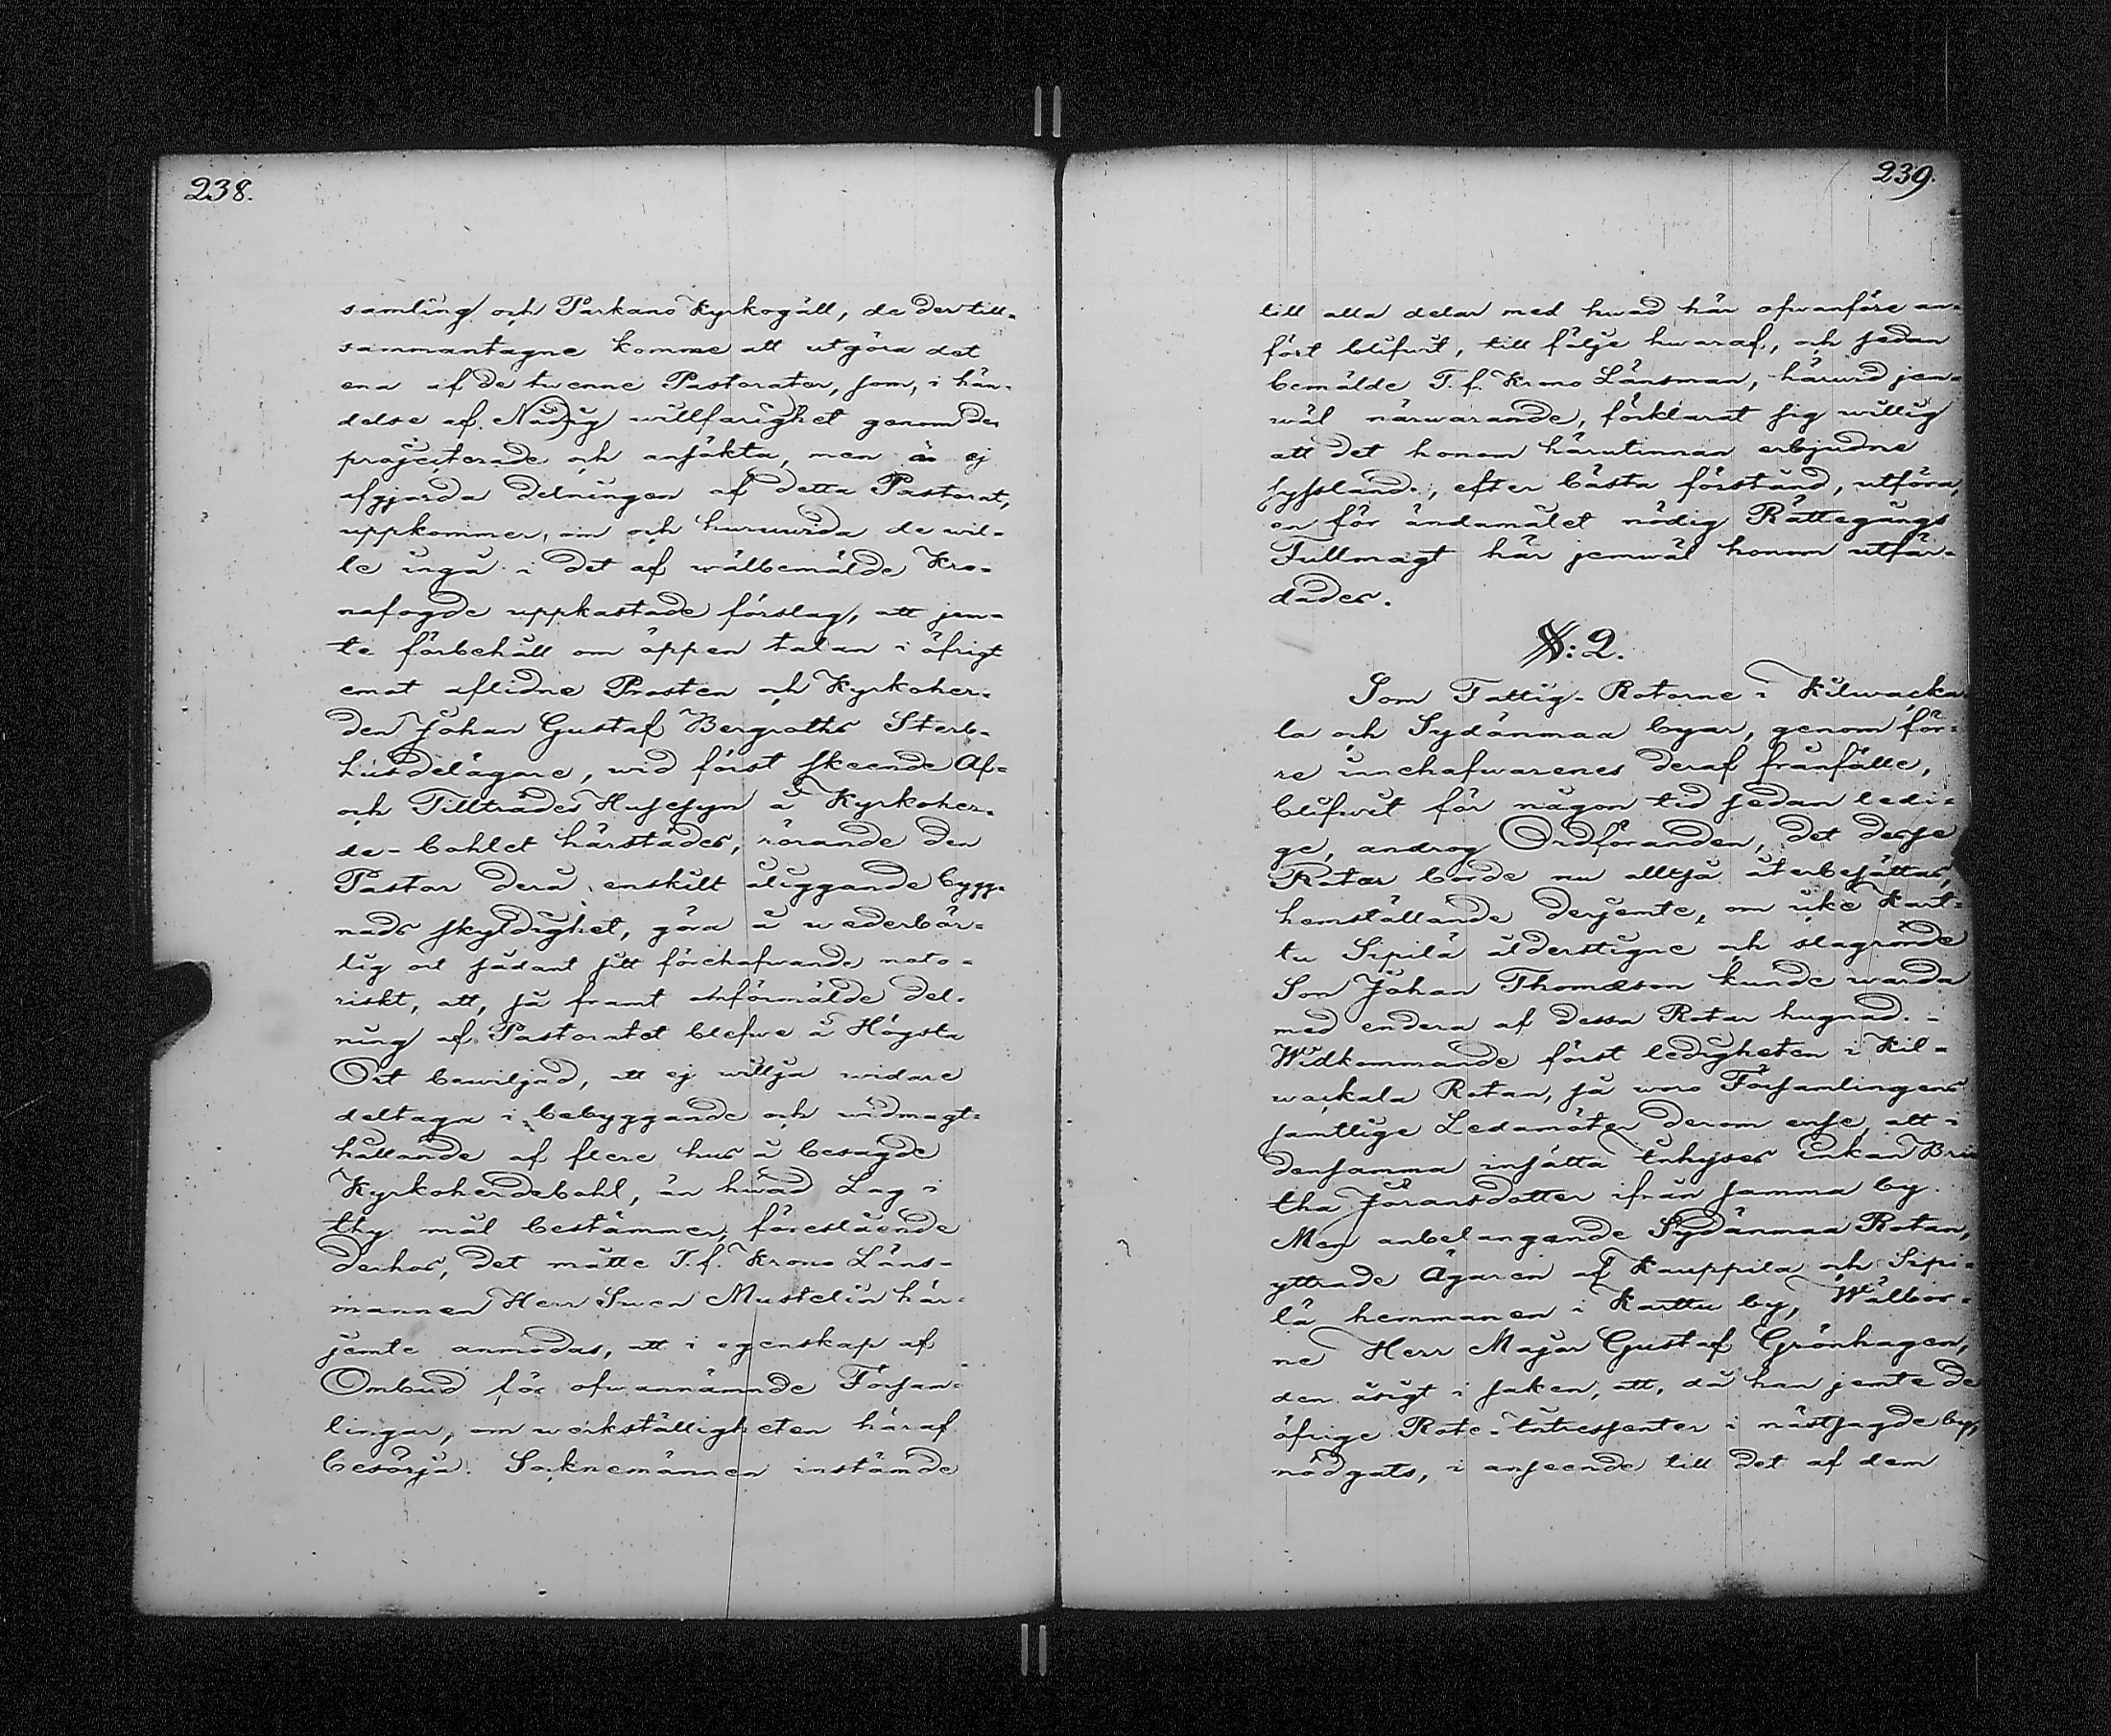 238.
samling och Parkano Kyrkogäll, de der till-
sammantagne komme att utgöra det
ena af de twenne Pastorater, som, i hän-
delse af Nådig willfarighet genom den
projecterade och ansökta, men än ej
afgjorda delningen af detta Pastorat,
uppkommer, om och huruwida de wil-
le ingå i det af wälbemälde Kro-
nofogde uppkastade förslag, att jem-
te förbehåll om öppen talan i öfrigt
emot aflidne Prosten och Kyrkoher-
den Johan Gustaf Bergroths Sterb-
husdelägare, wid först skeende Af-
och Tillträdes Husesyn å Kyrkoher-
de-bohlet härstädes, rörande den
Pastor derå enskilt åliggande bygg-
nads skyldighet, göra å wederbör-
lig ort sådant sitt förehafwande noto-
riskt, att, så framt omförmälde del-
ning af Pastoratet blefwe å Högsta
Ort bewiljad, att ej willja widare
deltaga i bebyggande och widmagt-
hållande af flere hus å besagde
Kyrkoherdebohl, än hwad Lag i
thy mål bestämmer, föreslående
derhos, det måtte T. f. Krono Läns-
mannen Herr Swen Mustelin här-
jemte anmodas, att i egenskap af
Ombud för ofwannämnde Försam-
lingar, om werkställigheten häraf
besörja. Socknemännen instämde
239.
till alla delar med hwad här ofwanföre an-
fört blifwit, till följe hwaraf, och sedan
bemälde T. f. Krono Länsman, härwid jem-
wäl närwarande, förklarat sig willig
att det honom härutinnan erbjudne
sysslande, efter bästa förstånd, utföra,
en för ändamålet nödig Rättegångs
Fullmagt här jemwäl honom utfär-
dades.
§: 2.
Som Fattig-Rotorne i Kilwacka-
la och Sydänmaa byar, genom för-
re innehafwarenes deraf frånfälle,
blifwit för någon tid sedan ledi-
ge, androg Ordföranden, det desse
Rotar borde nu alltså återbesättas,
hemställande derjemte, om icke Kart-
tu Sipilä ålderstigne och slagrörde
Son Johan Thomasson kunde warda
med endera af dessa Rotar hugnad. -
Widkommande först ledigheten i Kil-
wackala Rotan, så woro Församlingens
samtlige Ledamöter derom ense, att i
densamma insätta Inhyses Enkan Bri-
tha Jöransdotter ifrån samma by.
Men anbelangande Sydänmaa Rotan,
yttrade Ägaren af Kauppila och Sipi-
lä hemmanen i Karttu by, Wälbor-
ne Herr Major Gustaf Grönhagen,
den åsigt i saken, att, då han jemte de
öfrige Rote-Intressenter i nästsagde by,
nödgats, i anseende till det af dem